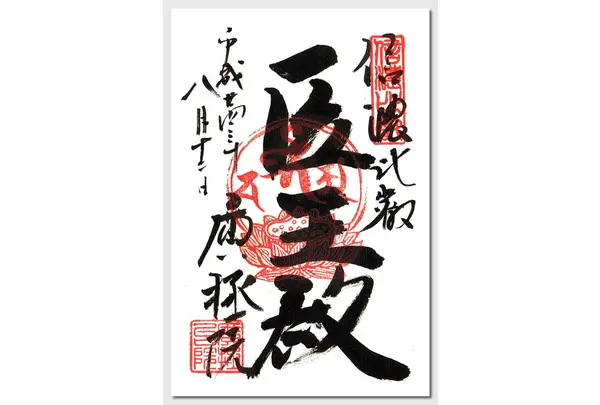 信濃比叡
医王殿
平成
八月十二日
廣拯院